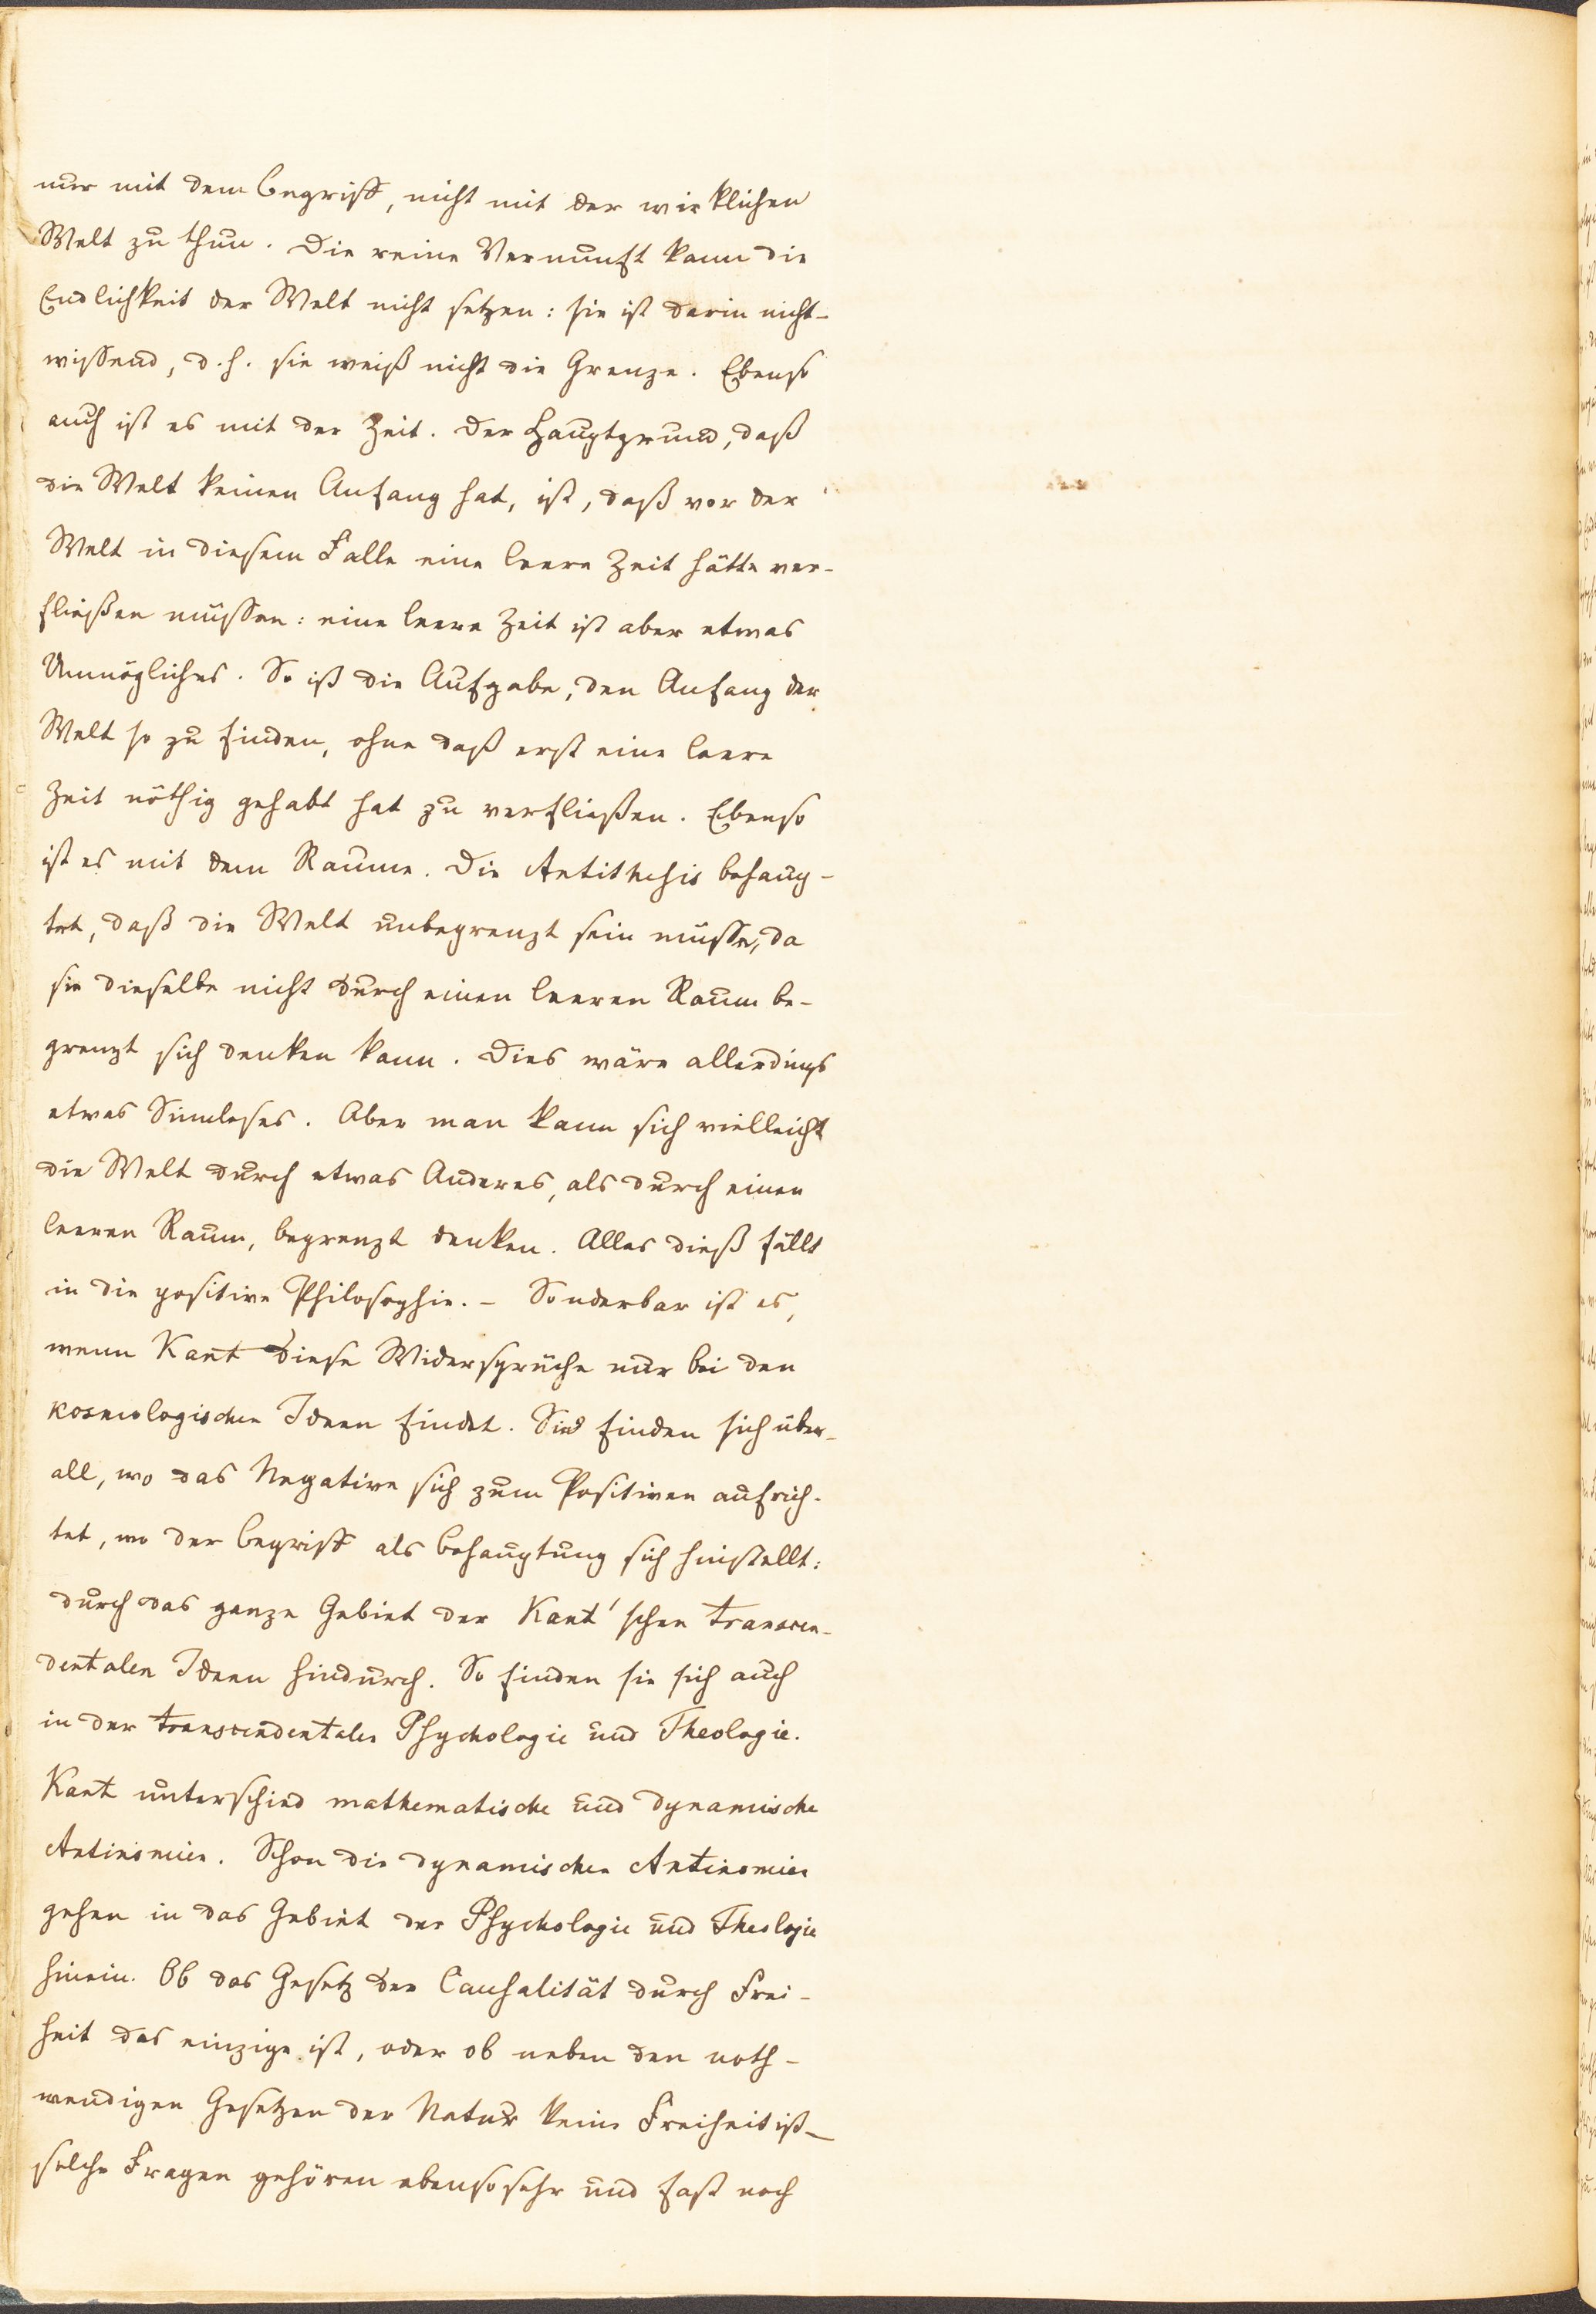 nur mit dem Begriff, nicht mit der wirklichen
Welt zu thun. Die reine Vernunft kann die
Endlichkeit der Welt nicht setzen: sie ist darin nicht-
wissend, d. h. sie weiß nicht die Grenze. Ebenso
auch ist es mit der Zeit. Der Hauptgrund, daß
die Welt keinen Anfang hat, ist, daß vor der
Welt in diesem Falle eine leere Zeit hätte ver-
fließen müssen: eine leere Zeit ist aber etwas
Unmögliches. So ist die Aufgabe, den Anfang der
Welt so zu finden, ohne daß erst eine leere
Zeit nöthig gehabt hat zu verfließen. Ebenso
ist es mit dem Raume. Die Antithesis behaup-
tet, daß die Welt unbegrenzt sein müsse, da
sie dieselbe nicht durch einen leeren Raum be-
grenzt sich denken kann. Dies wäre allerdings
etwas Sinnloses. Aber man kann sich vielleicht
die Welt durch etwas Anderes, als durch einen
leeren Raum, begrenzt denken. Alles dieß fällt
in die positive Philosophie. – Sonderbar ist es,
wenn Kant diese Widersprüche nur bei den
kosmologischen Ideen findet. Sie finden sich über-
all, wo das Negative sich zum Positiven aufrich-
tet, wo der Begriff als Behauptung sich hinstellt:
durch das ganze Gebiet der Kant'schen transcen-
dentalen Ideen hindurch. So finden sie sich auch
in der transcendentalen Psychologie und Theologie.
Kant unterschied mathematische und dynamische
Antinomien. Schon die dynamischen Antinomien
gehen in das Gebiet der Psychologie und Theologie
hinein. Ob das Gesetz der Causalität durch Frei-
heit das einzige ist, oder ob neben den noth-
wendigen Gesetzen der Natur keine Freiheit ist –
solche Fragen gehören ebensosehr und fast noch